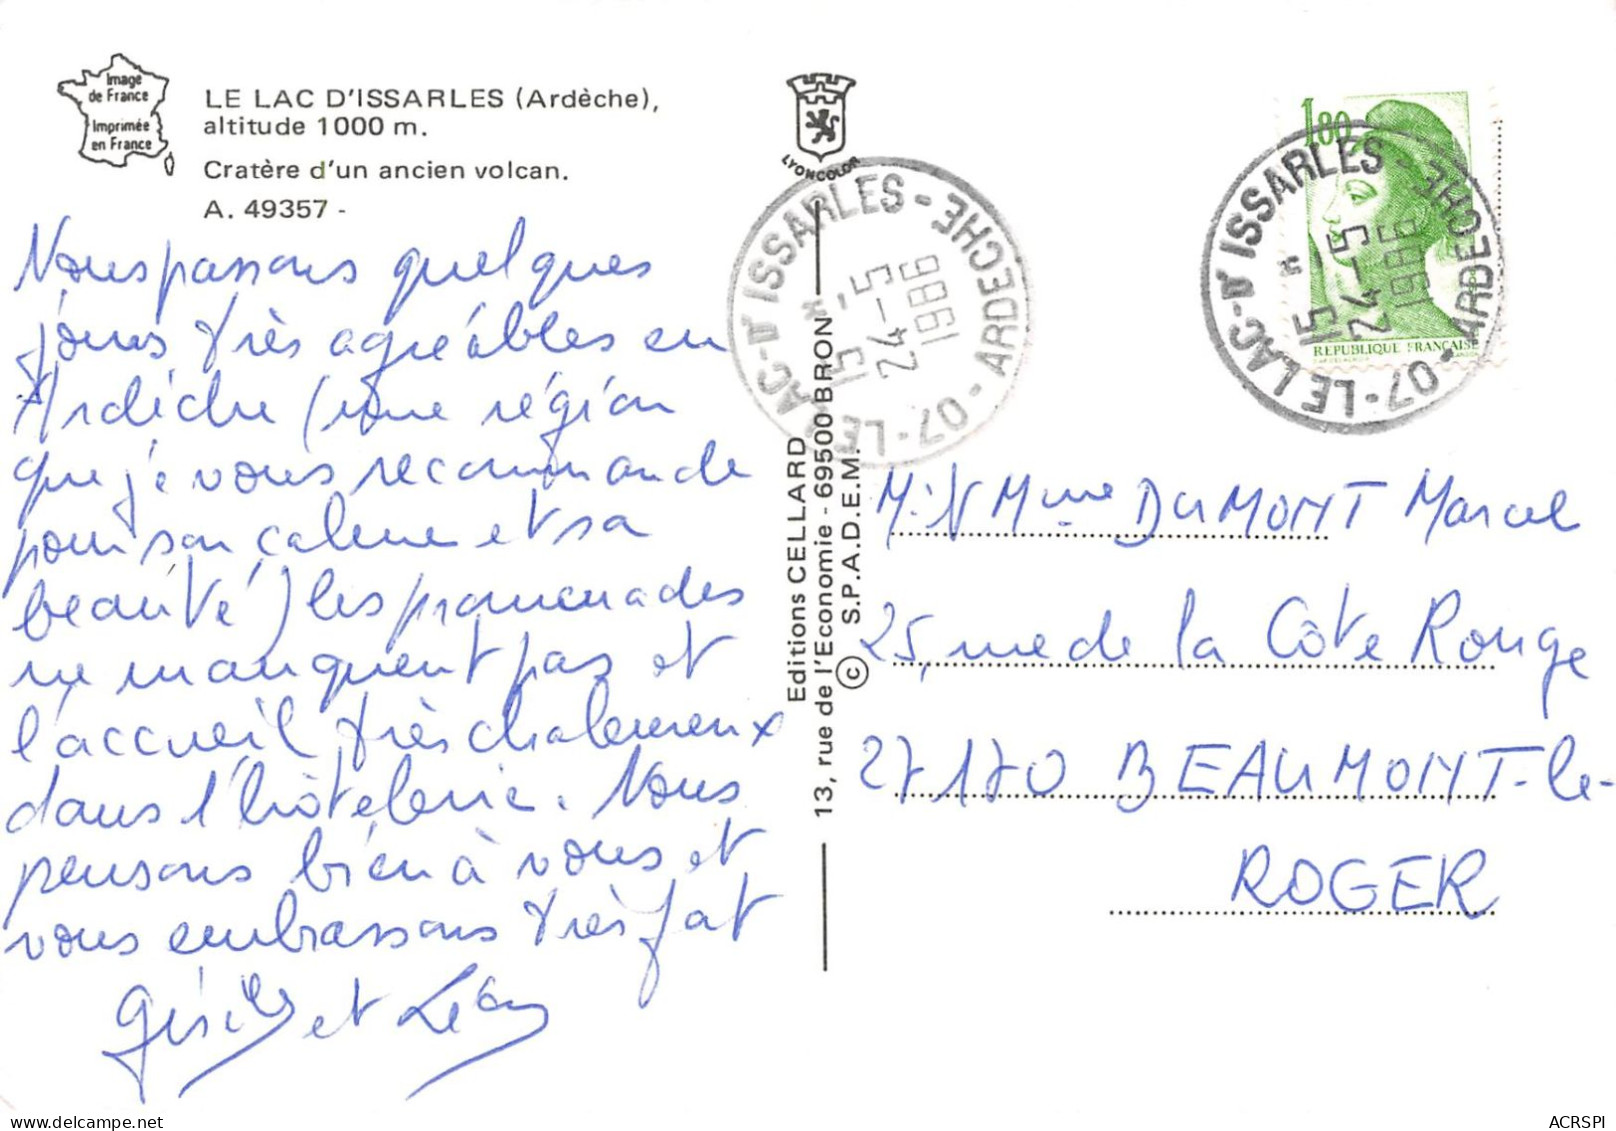 Image
de France
Imprimée
en France
LE LAC D'ISSARLES (Ardèche),
altitude 1000 m.
Cratère d'un ancien volcan.
A. 49357 -
Nous passons quelques
jours très agréables en
Ardèche (une région
que je vous recommande
pour son calme et sa
beauté) les promenades
ne manquent pas et
l'accueil très chaleureux
dans l'hôtelerie. Nous
pensons bien à vous et
vous embrassons très fort
Gisèle et Léon
LYONCOLOR
Editions CELLARD
13, rue de l'Economie - 69500 BRON
© S.P.A.D.E.M.
07 - LE LAC-D'ISSARLES - ARDECHE
15 H
24 - 5
1986
1,80
REPUBLIQUE FRANÇAISE
07 - LE LAC-D'ISSARLES - ARDECHE
15 H
24 - 5
1986
Mme DUMONT Marcel
25, rue de la Côte Rouge
27170 BEAUMONT-le-
ROGER
ACRSPI